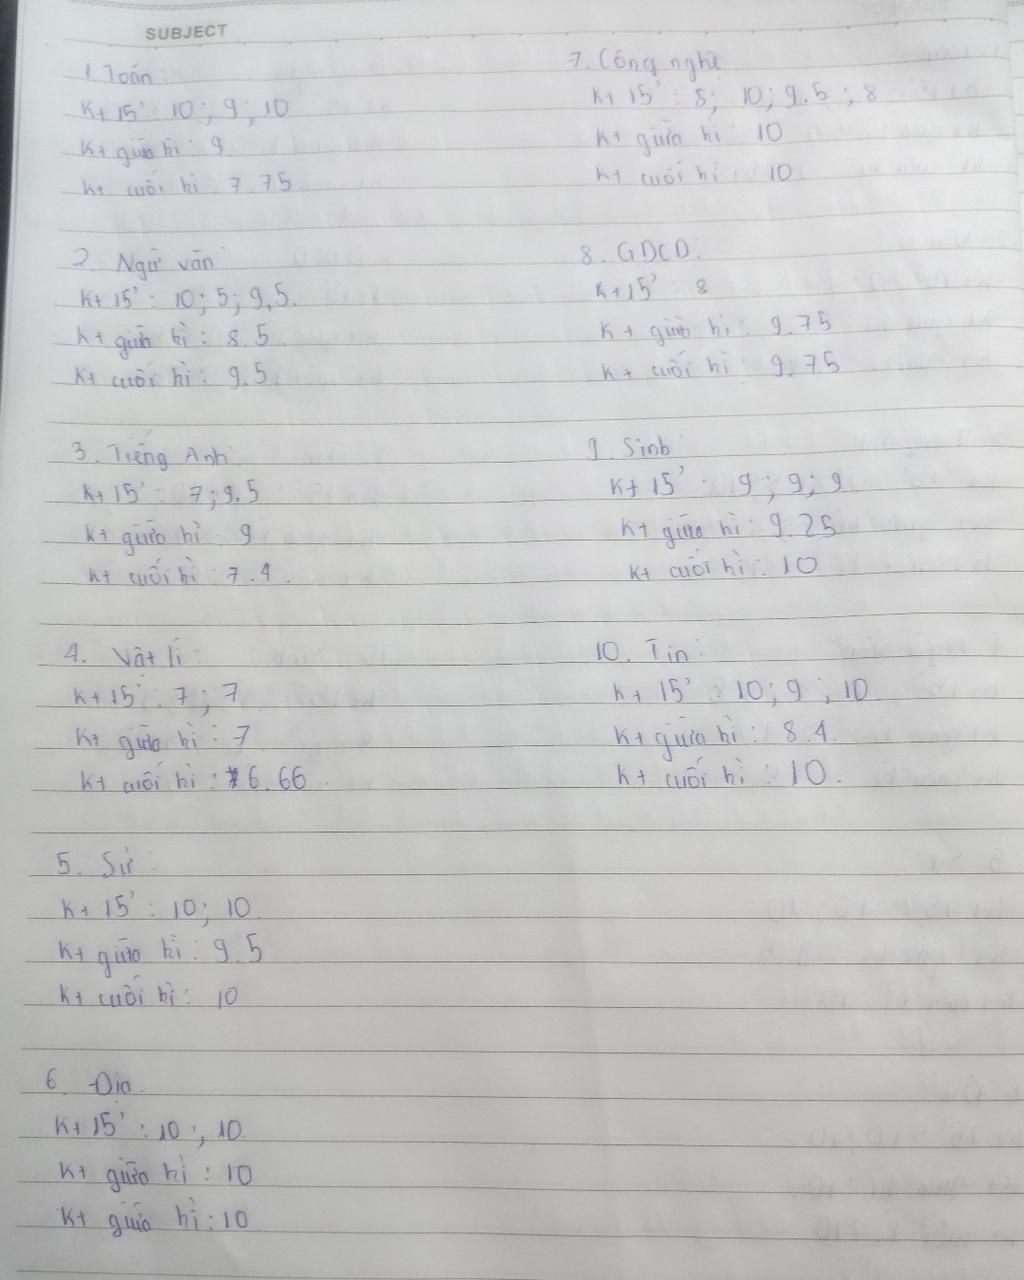 SUBJECT
1. Toán:
Kt 15' : 10 ; 9 ; 10
Kt giữa kì : 9
Kt cuối kì : 7.75
2. Ngữ văn:
Kt 15' : 10 ; 5 ; 9.5.
Kt giữa kì : 8.5
Kt cuối kì : 9.5.
3. Tiếng Anh:
Kt 15' : 7 ; 9.5
Kt giữa kì : 9
Kt cuối kì : 7.4.
4. Vật lí :
Kt 15' : 7 ; 7
Kt giữa kì : 7
Kt cuối kì : 6.66
5. Sử :
Kt 15' : 10 ; 10
Kt giữa kì : 9.5
Kt cuối kì : 10
6. Địa.
Kt 15' : 10 ; 10
Kt giữa kì : 10
Kt giữa kì : 10
7. Công nghệ
Kt 15' : 8 ; 10 ; 9.5 ; 8
Kt giữa kì : 10
Kt cuối kì : 10
8. GDCD:
Kt 15' : 8
Kt giữa kì : 9.75
Kt cuối kì : 9.75
9. Sinh :
Kt 15' : 9 ; 9 ; 9
Kt giữa kì : 9.25
Kt cuối kì : 10
10. Tin :
Kt 15' : 10 ; 9 ; 10
Kt giữa kì : 8.4
Kt cuối kì : 10.